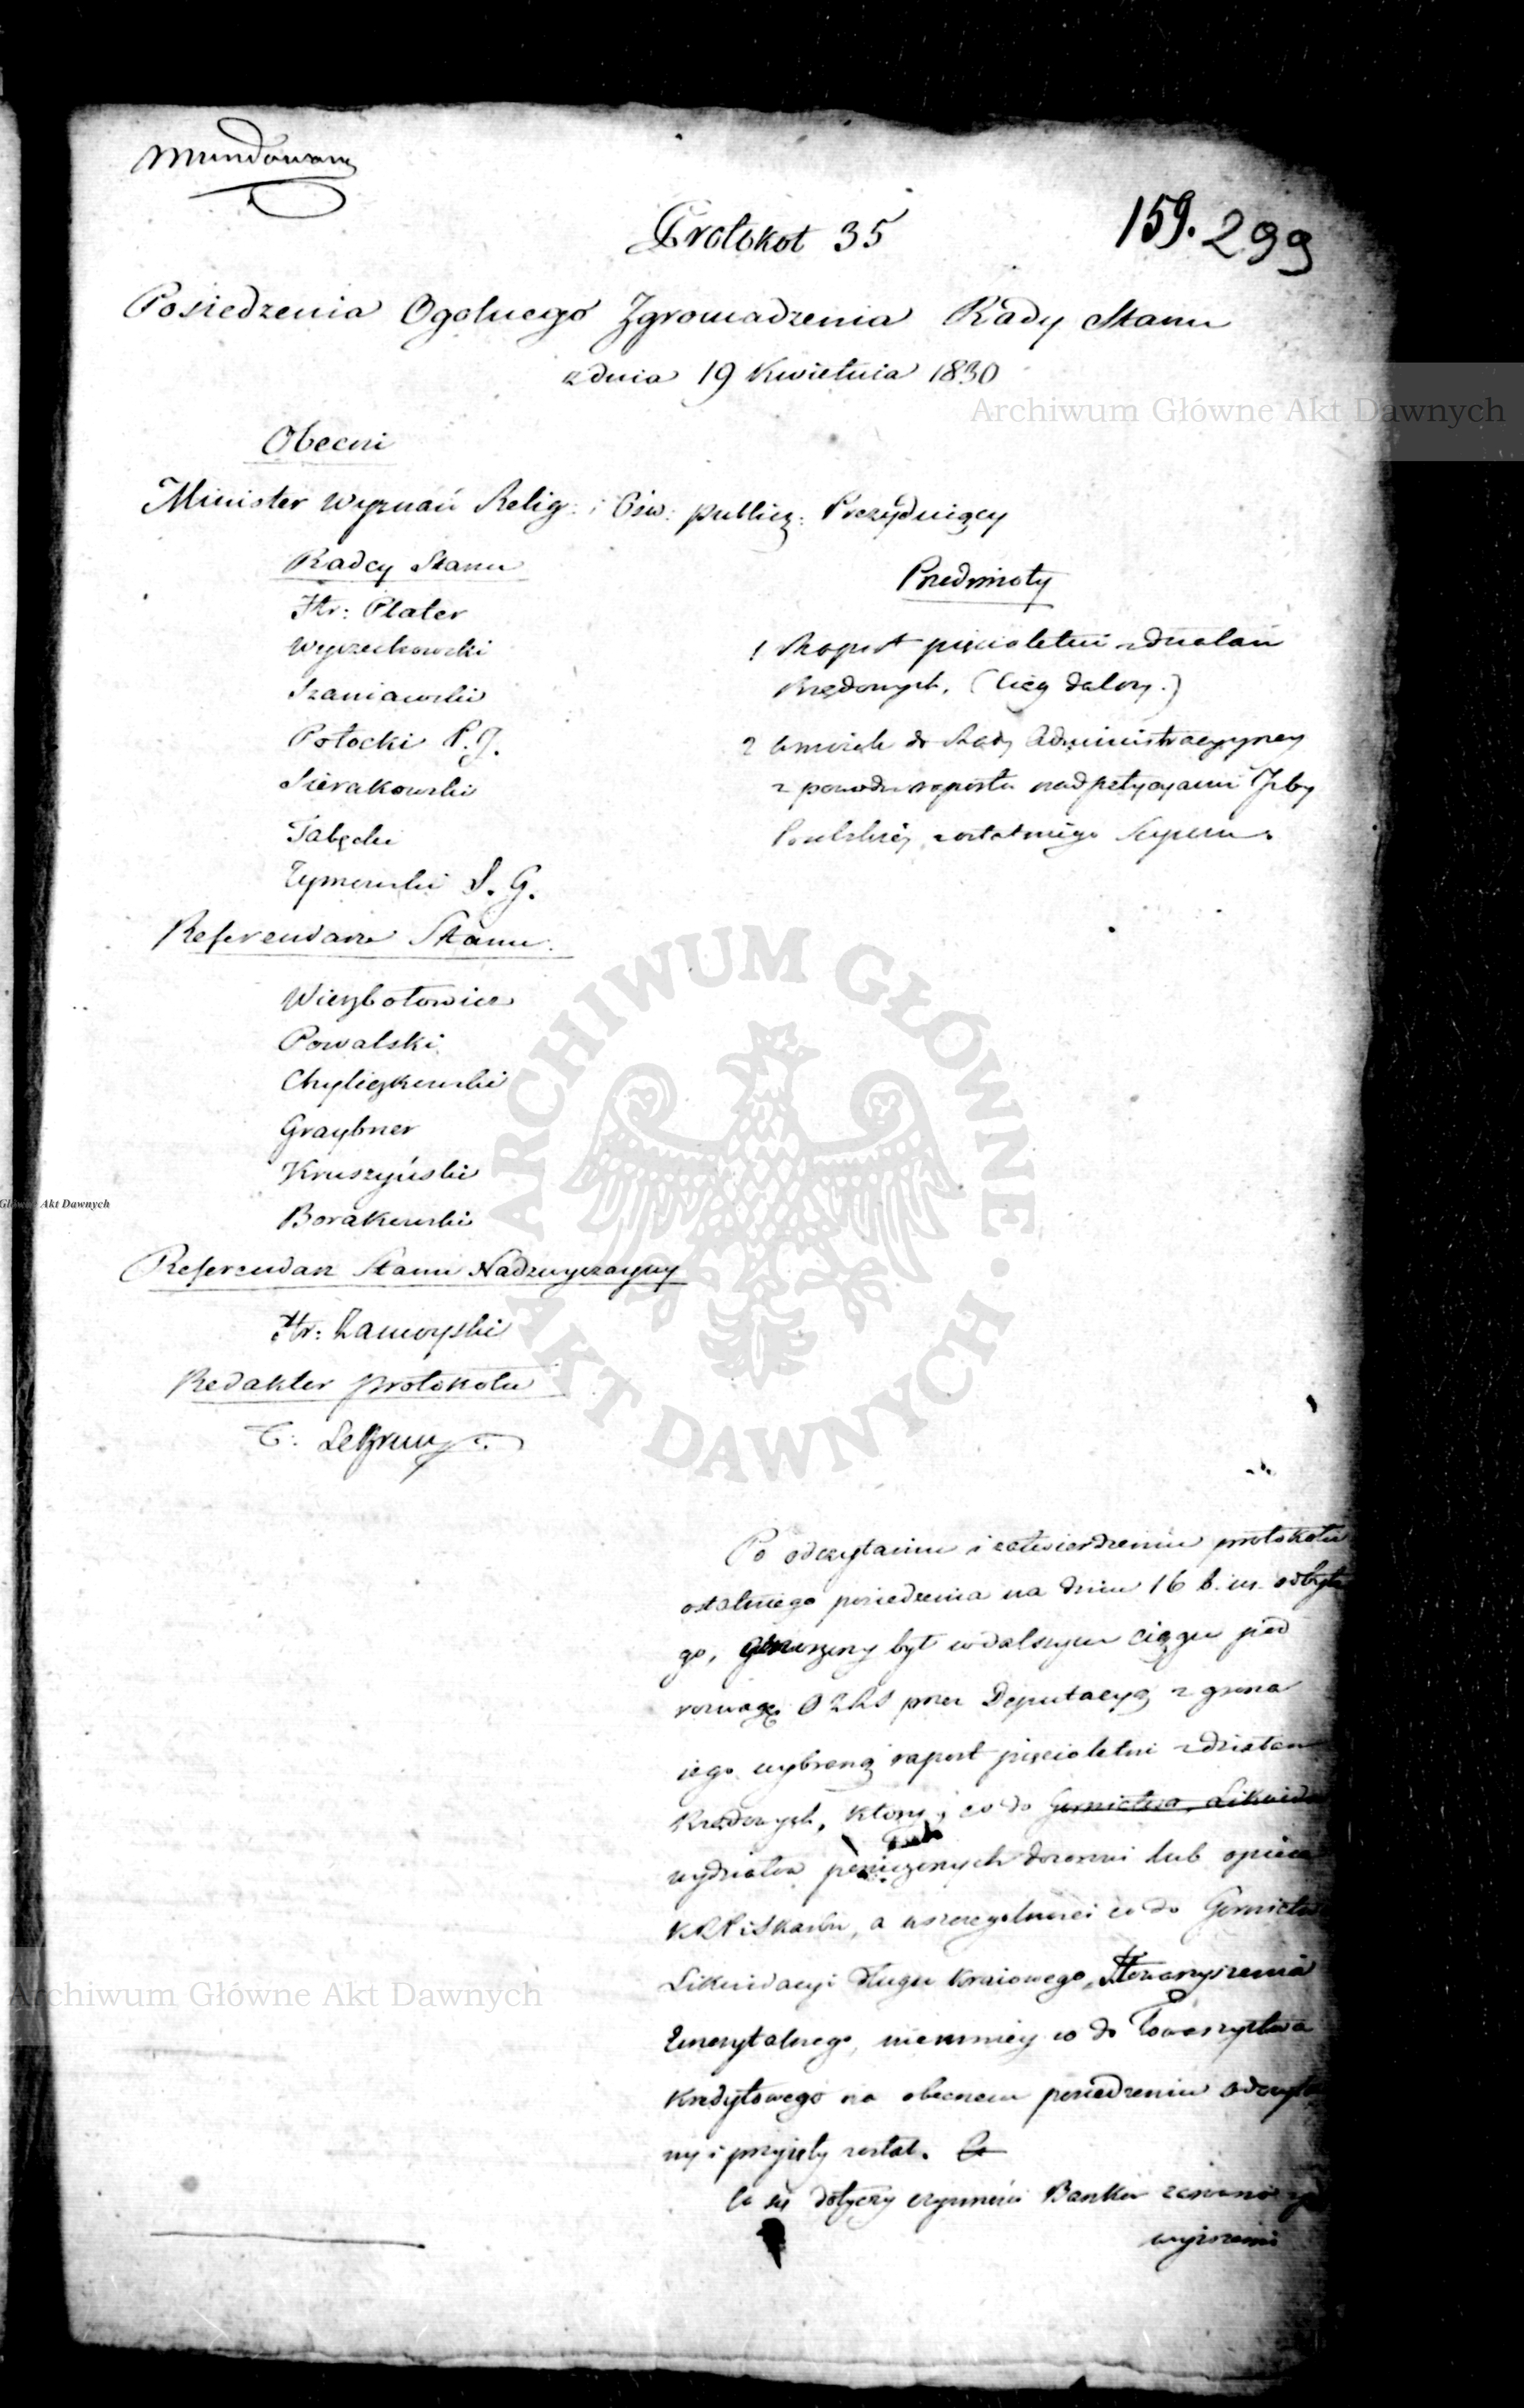 Mundowany
159. 299
Protokoł 35
Posiedzenia Ogolnego Zgromadzenia Rady Stanu
z dnia 19 Kwietnia 1830
Archiwum Główne Akt Dawnych
Obecni
Minister Wyznań Relig: i Ośw: publicz: Prezyduiący
Radcy Stanu
Hr: Plater
Wyczechowski
Szaniawski
Potocki P. J.
Sierakowski
Tabęcki
Tymowski S. G.
Referendarze Stanu.
Wierzbołowicz
Powalski
Chyliczkowski
Graybner
Kruszyński
Borakowski
Referendarz Stanu Nadzwyczayny
Hr: Zamoyski
Redaktor protokołu
Przedmioty
1 Raport pięcioletni z działań
Rządowych. (Ciąg dalszy.)
2 Wniosek do Rady Administracyyney
z powodu raportu nad petycyami Izby
Poselskiey z ostatniego Seymu.
ARCHIWUM GŁÓWNE AKT DAWNYCH
Główne Akt Dawnych
Po odczytaniu i zatwierdzeniu protokołu
ostatniego posiedzenia na dniu 16 b. m. odbyte
go, był w dalszym ciągu pod
rozwagę OZRS przez Deputacyą z grona
iego wybraną raport pięcioletni z działań
Rządowych, który, co do Gornictwa, Likwida
wydziałów dozorowi lub opiece
KRPiSkarbu, a w szczegolności co do Gornictwa
Likwidacyi długu kraiowego, Stowarzyszenia
Emerytalnego, niemniey co do Towarzystwa
Kredytowego na obecnem posiedzeniu odczyta
ny i przyięty został. Co
Co się dotyczy czynności Banku
Archiwum Główne Akt Dawnych